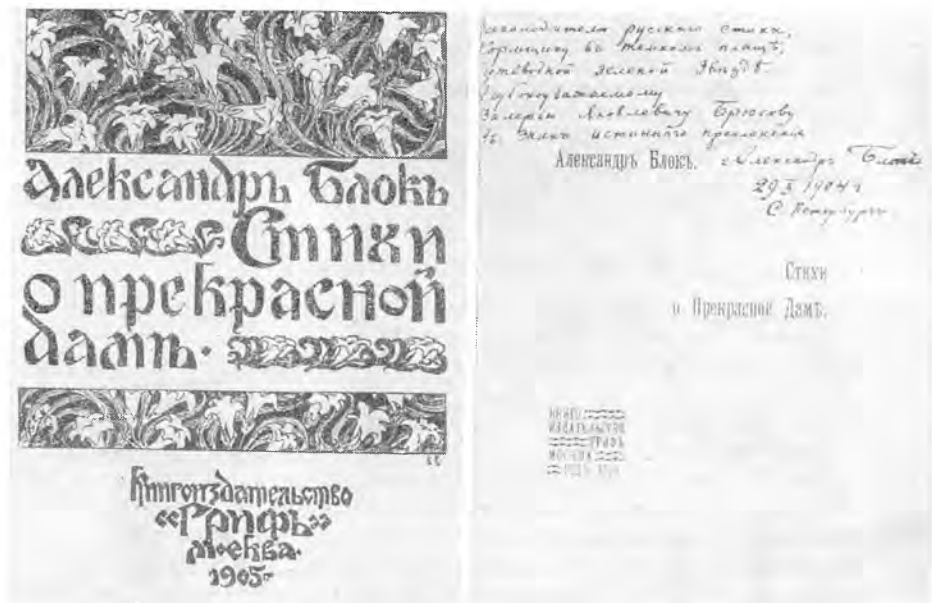 Александръ Блокъ
Стихи
о прекрасной
дамѣ.
Книгоиздательство
«Грифъ»
Москва.
1905
русскаго стиха,
Кормщику въ темномъ плащѣ,
путеводной зеленой Звѣздѣ
Глубокоуважаемому
Валерію Яковлевичу Брюсову
въ знакъ истиннаго преклоненія
Александръ Блокъ. Александръ Блокъ
29 X 1904 г
С. Петербургъ
Стихи
о Прекрасной Дамѣ.
КНИГО
ИЗДАТЕЛЬСТВО
ГРИФЪ
МОСКВА